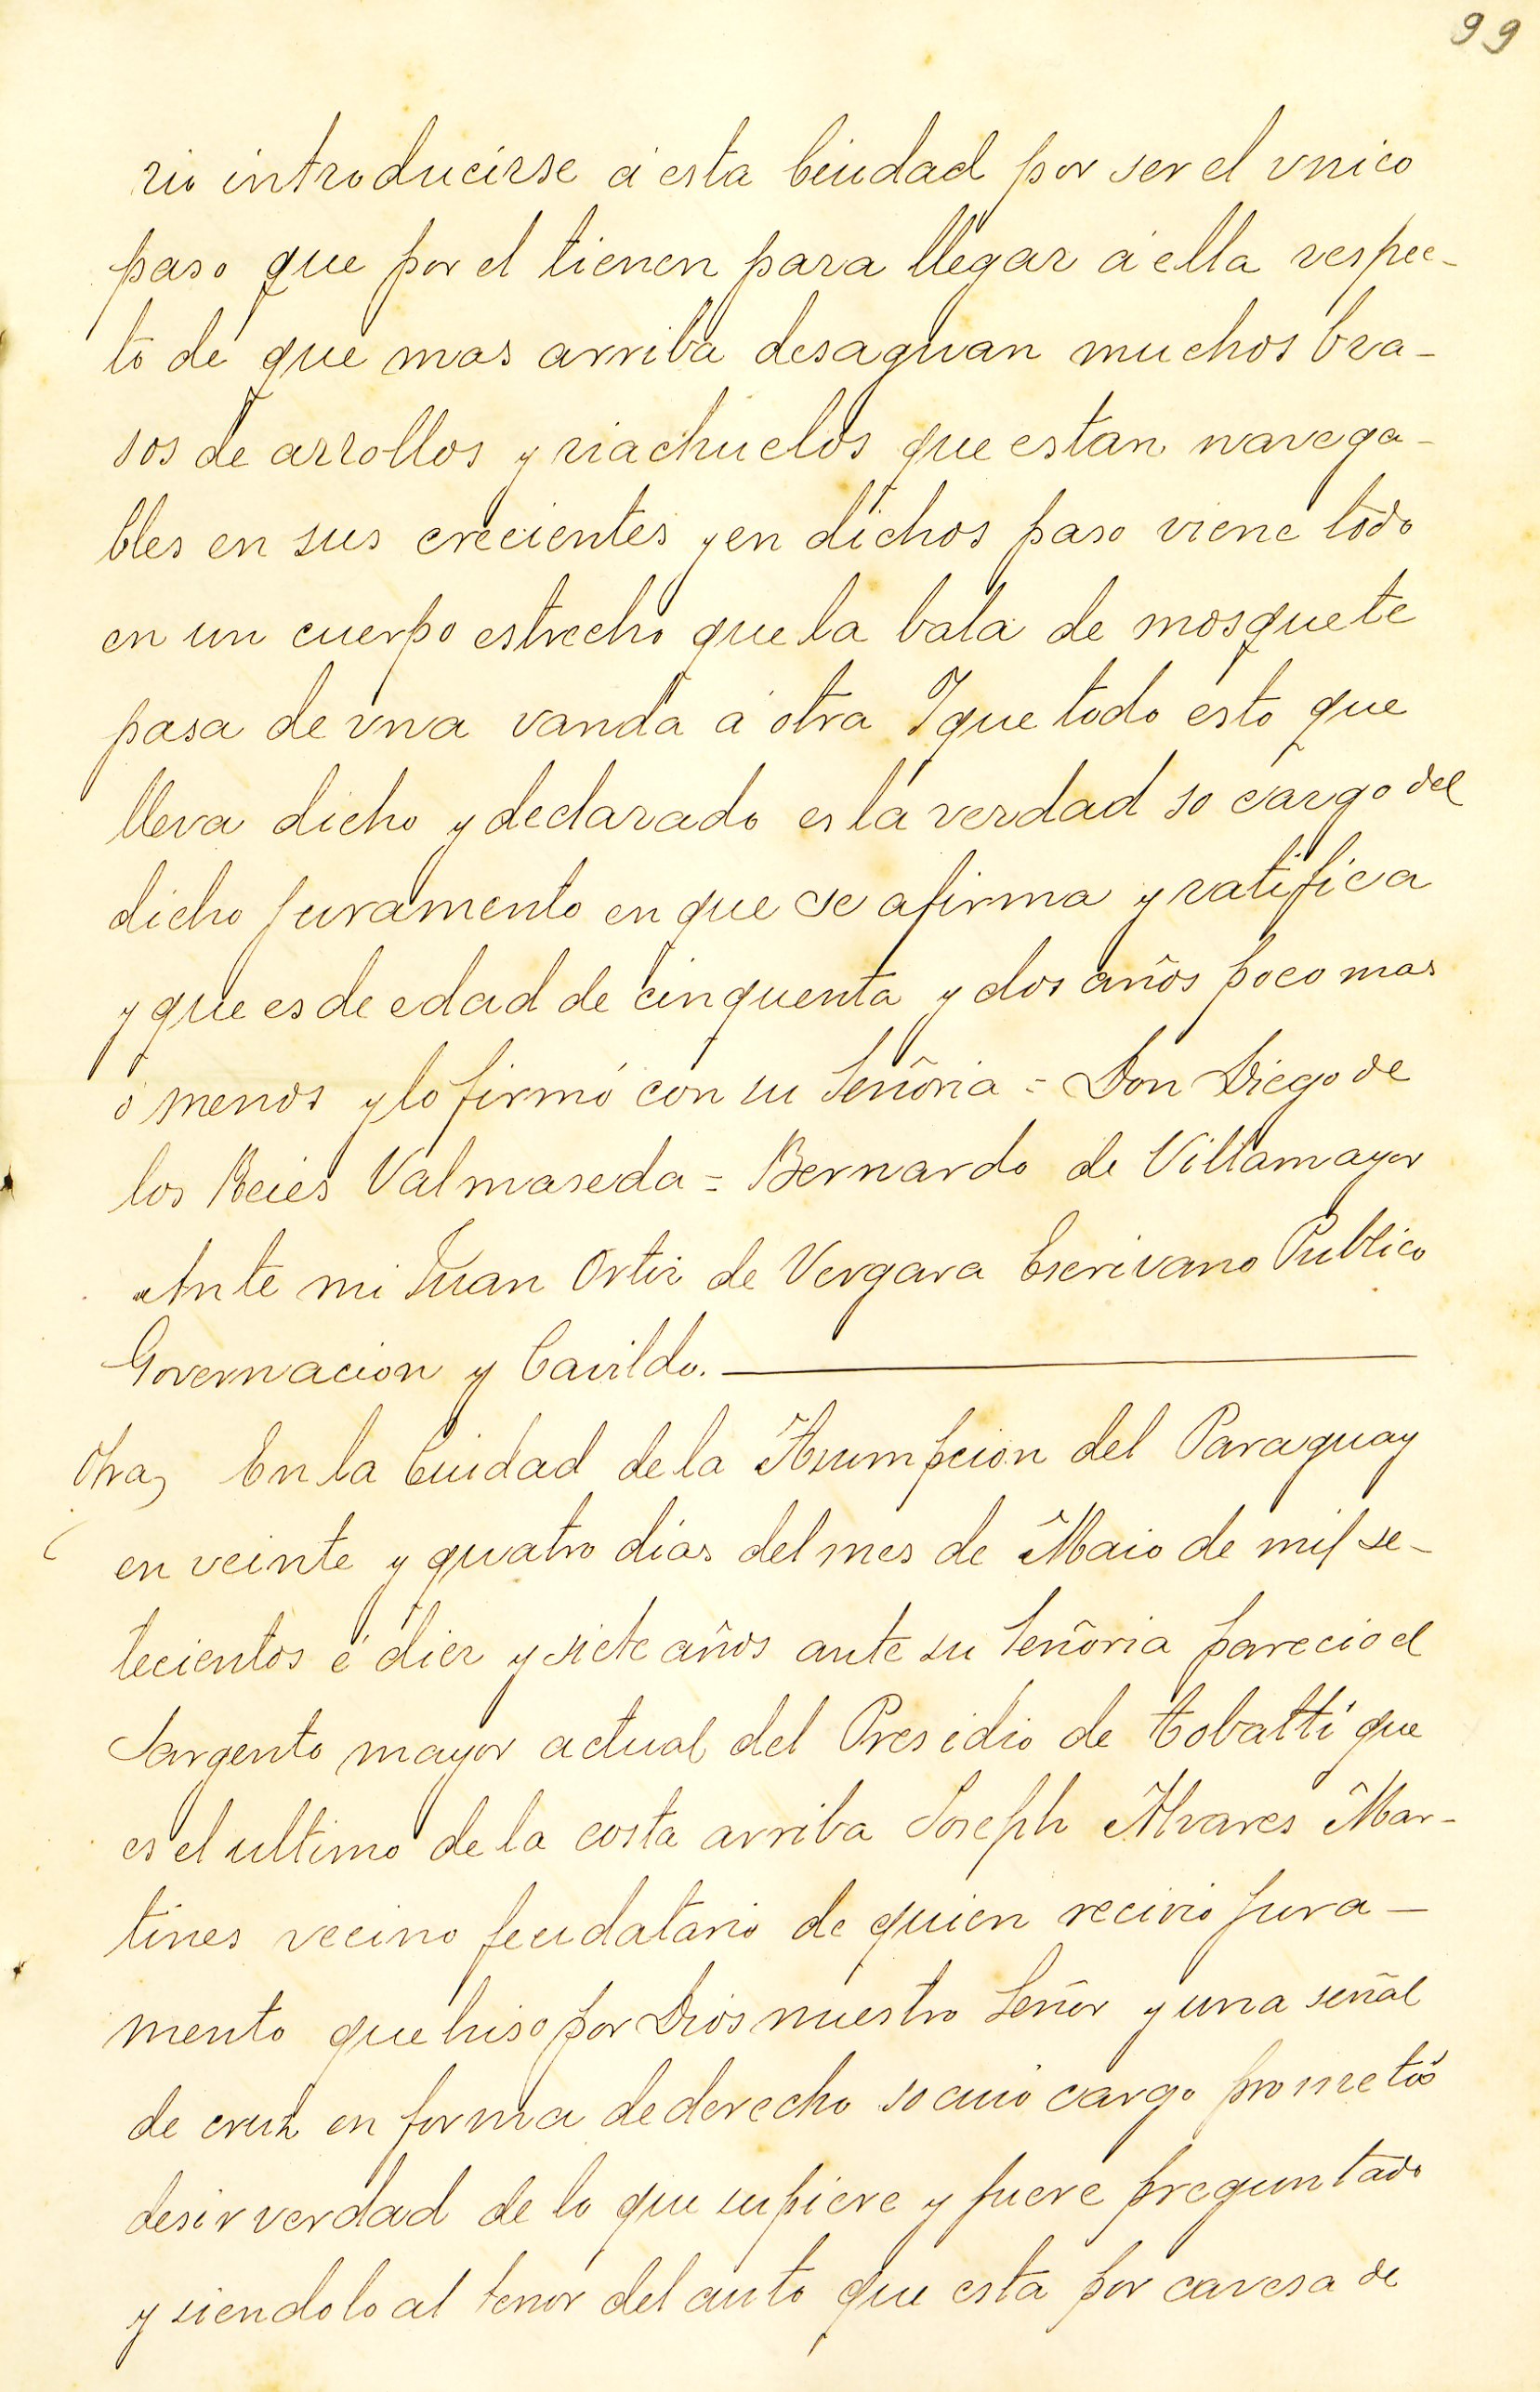 99
rio introducirse á esta Ciudad por ser el vnico
paso que por el tienen para llegar á ella respec-
to de que mas arriba desaguan muchos bra-
sos de arrollos y riachuelos que estan navega-
bles en sus crecientes y en dichos paso viene todo
en un cuerpo estrecho que la bala de mosquete
pasa de vna vanda á otra Y que todo esto que
lleva dicho y declarado es la verdad so cargo del
dicho juramento en que se afirma y ratifica
y que es de edad de cinquenta y dos años poco mas
ó menos y lo firmó con su Señoria = Don Diego de
los Reies Valmaseda = Bernardo de Villamayor
Ante mi Juan Ortiz de Vergara Escrivano Publico
Governacion y Cavildo.
Otra, En la Ciudad de la Assumpcion del Paraguay
en veinte y quatro dias del mes de Maio de mil se-
tecientos é diez y siete años ante su Señoria parecio el
Sargento mayor actual del Presidio de tobatti que
es el ultimo de la costa arriba Joseph Alvares Mar-
tines vecino feudatario de quien recivio jura-
mento que hiso por Dios nuestro Señor y una señal
de cruz en forma de derecho so cuio cargo prometió
desir verdad de lo que supiere y fuere preguntado
y siendolo al tenor del auto que esta por cavesa de